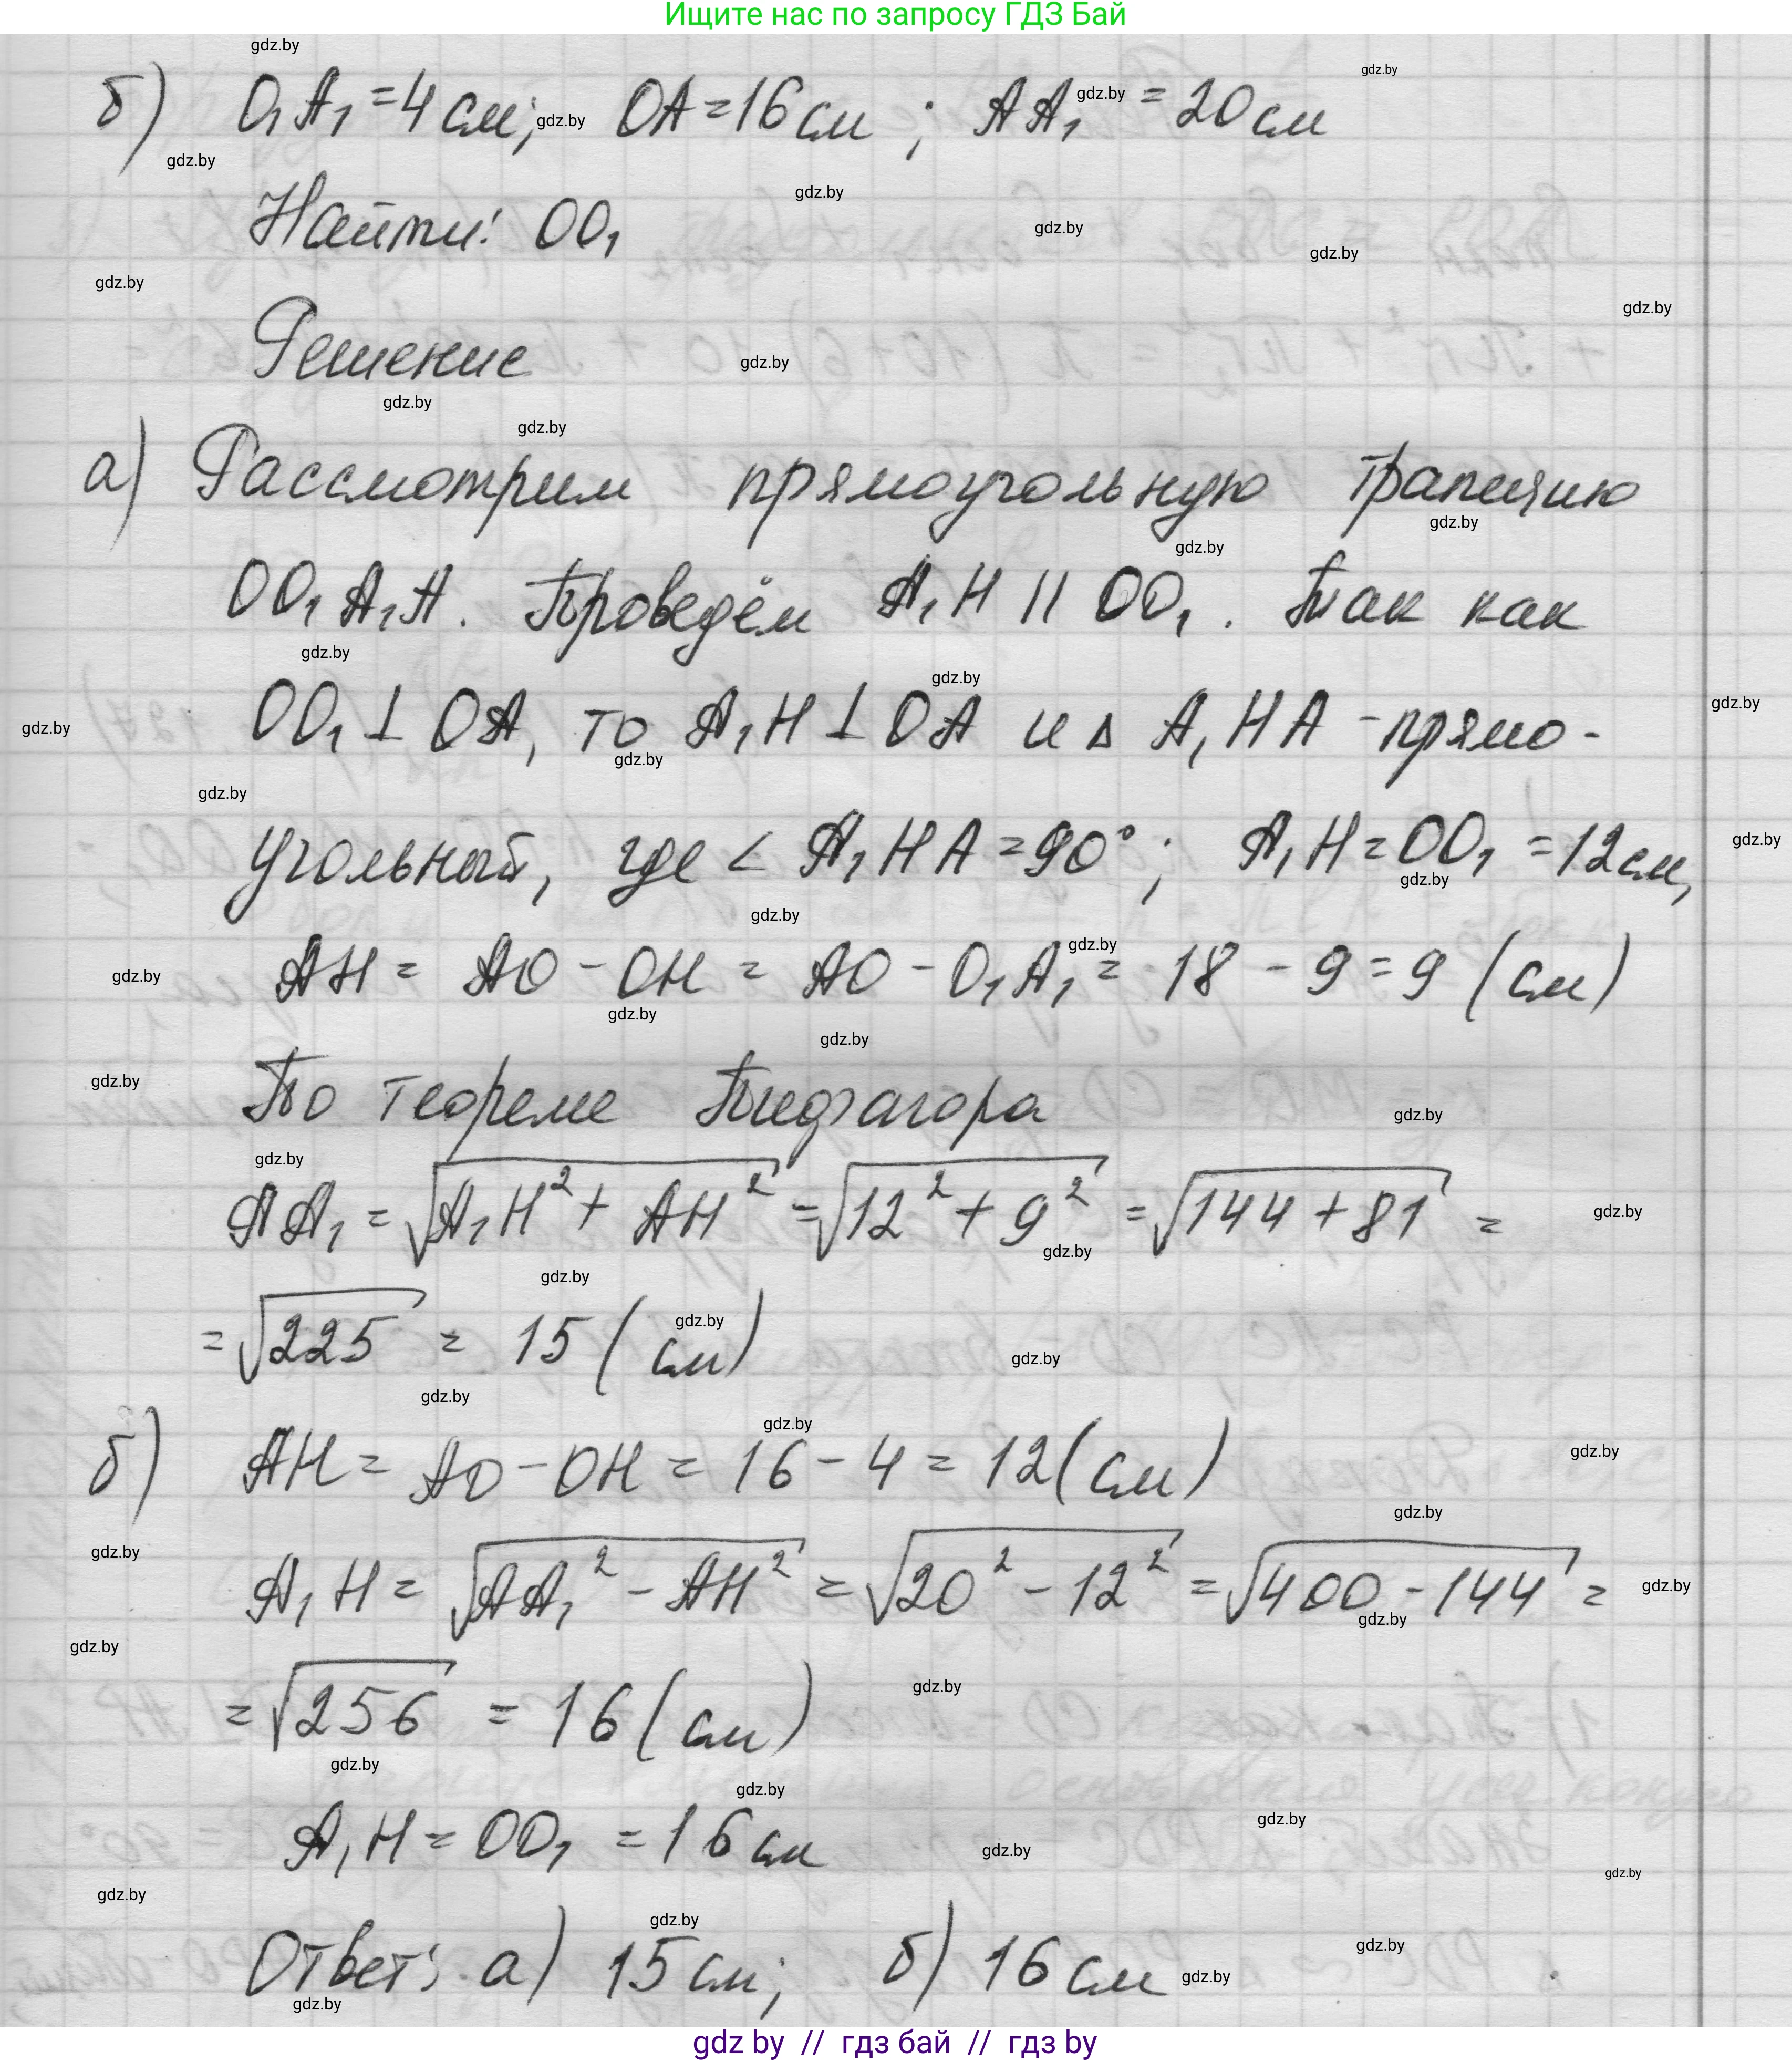 Ищите нас по запросу ГДЗ Бай
б) O₁A₁ = 4 см; OA = 16 см ; AA₁ = 20 см
Найти: OO₁
Решение
а) Рассмотрим прямоугольную трапецию
OO₁A₁A. Проведём A₁H || OO₁. Так как
OO₁ ⊥ OA, то A₁H ⊥ OA и Δ A₁HA - прямо-
угольный, где < A₁HA = 90°; A₁H = OO₁ = 12 см,
AH = AO - OH = AO - O₁A₁ = 18 - 9 = 9 (см)
По теореме Пифагора
AA₁ = √A₁H² + AH² = √12² + 9² = √144 + 81 =
= √225 = 15 (см)
б) AH = AO - OH = 16 - 4 = 12 (см)
A₁H = √AA₁² - AH² = √20² - 12² = √400 - 144 =
= √256 = 16 (см)
A₁H = OO₁ = 16 см
Ответ: а) 15 см; б) 16 см
gdz by // гдз бай // гдз by